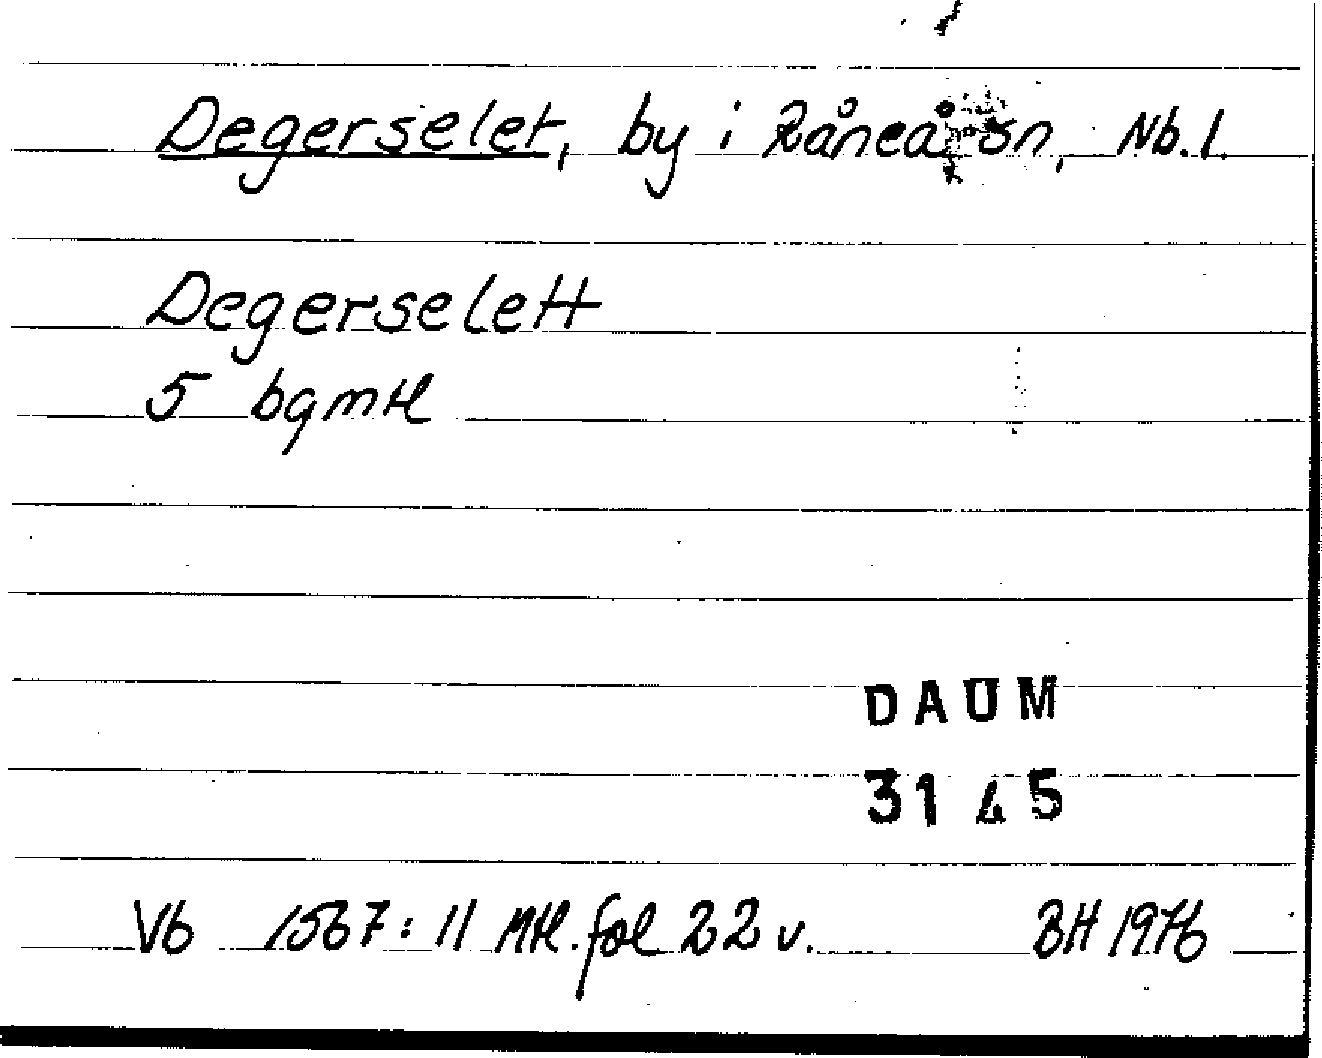 Degerselet, by i Råneå sn, Nb.l.
Degerselett
5 bgmtl
DAUM
3145
Vb 1567:11 Mtl. fol 22 v. BH 1976